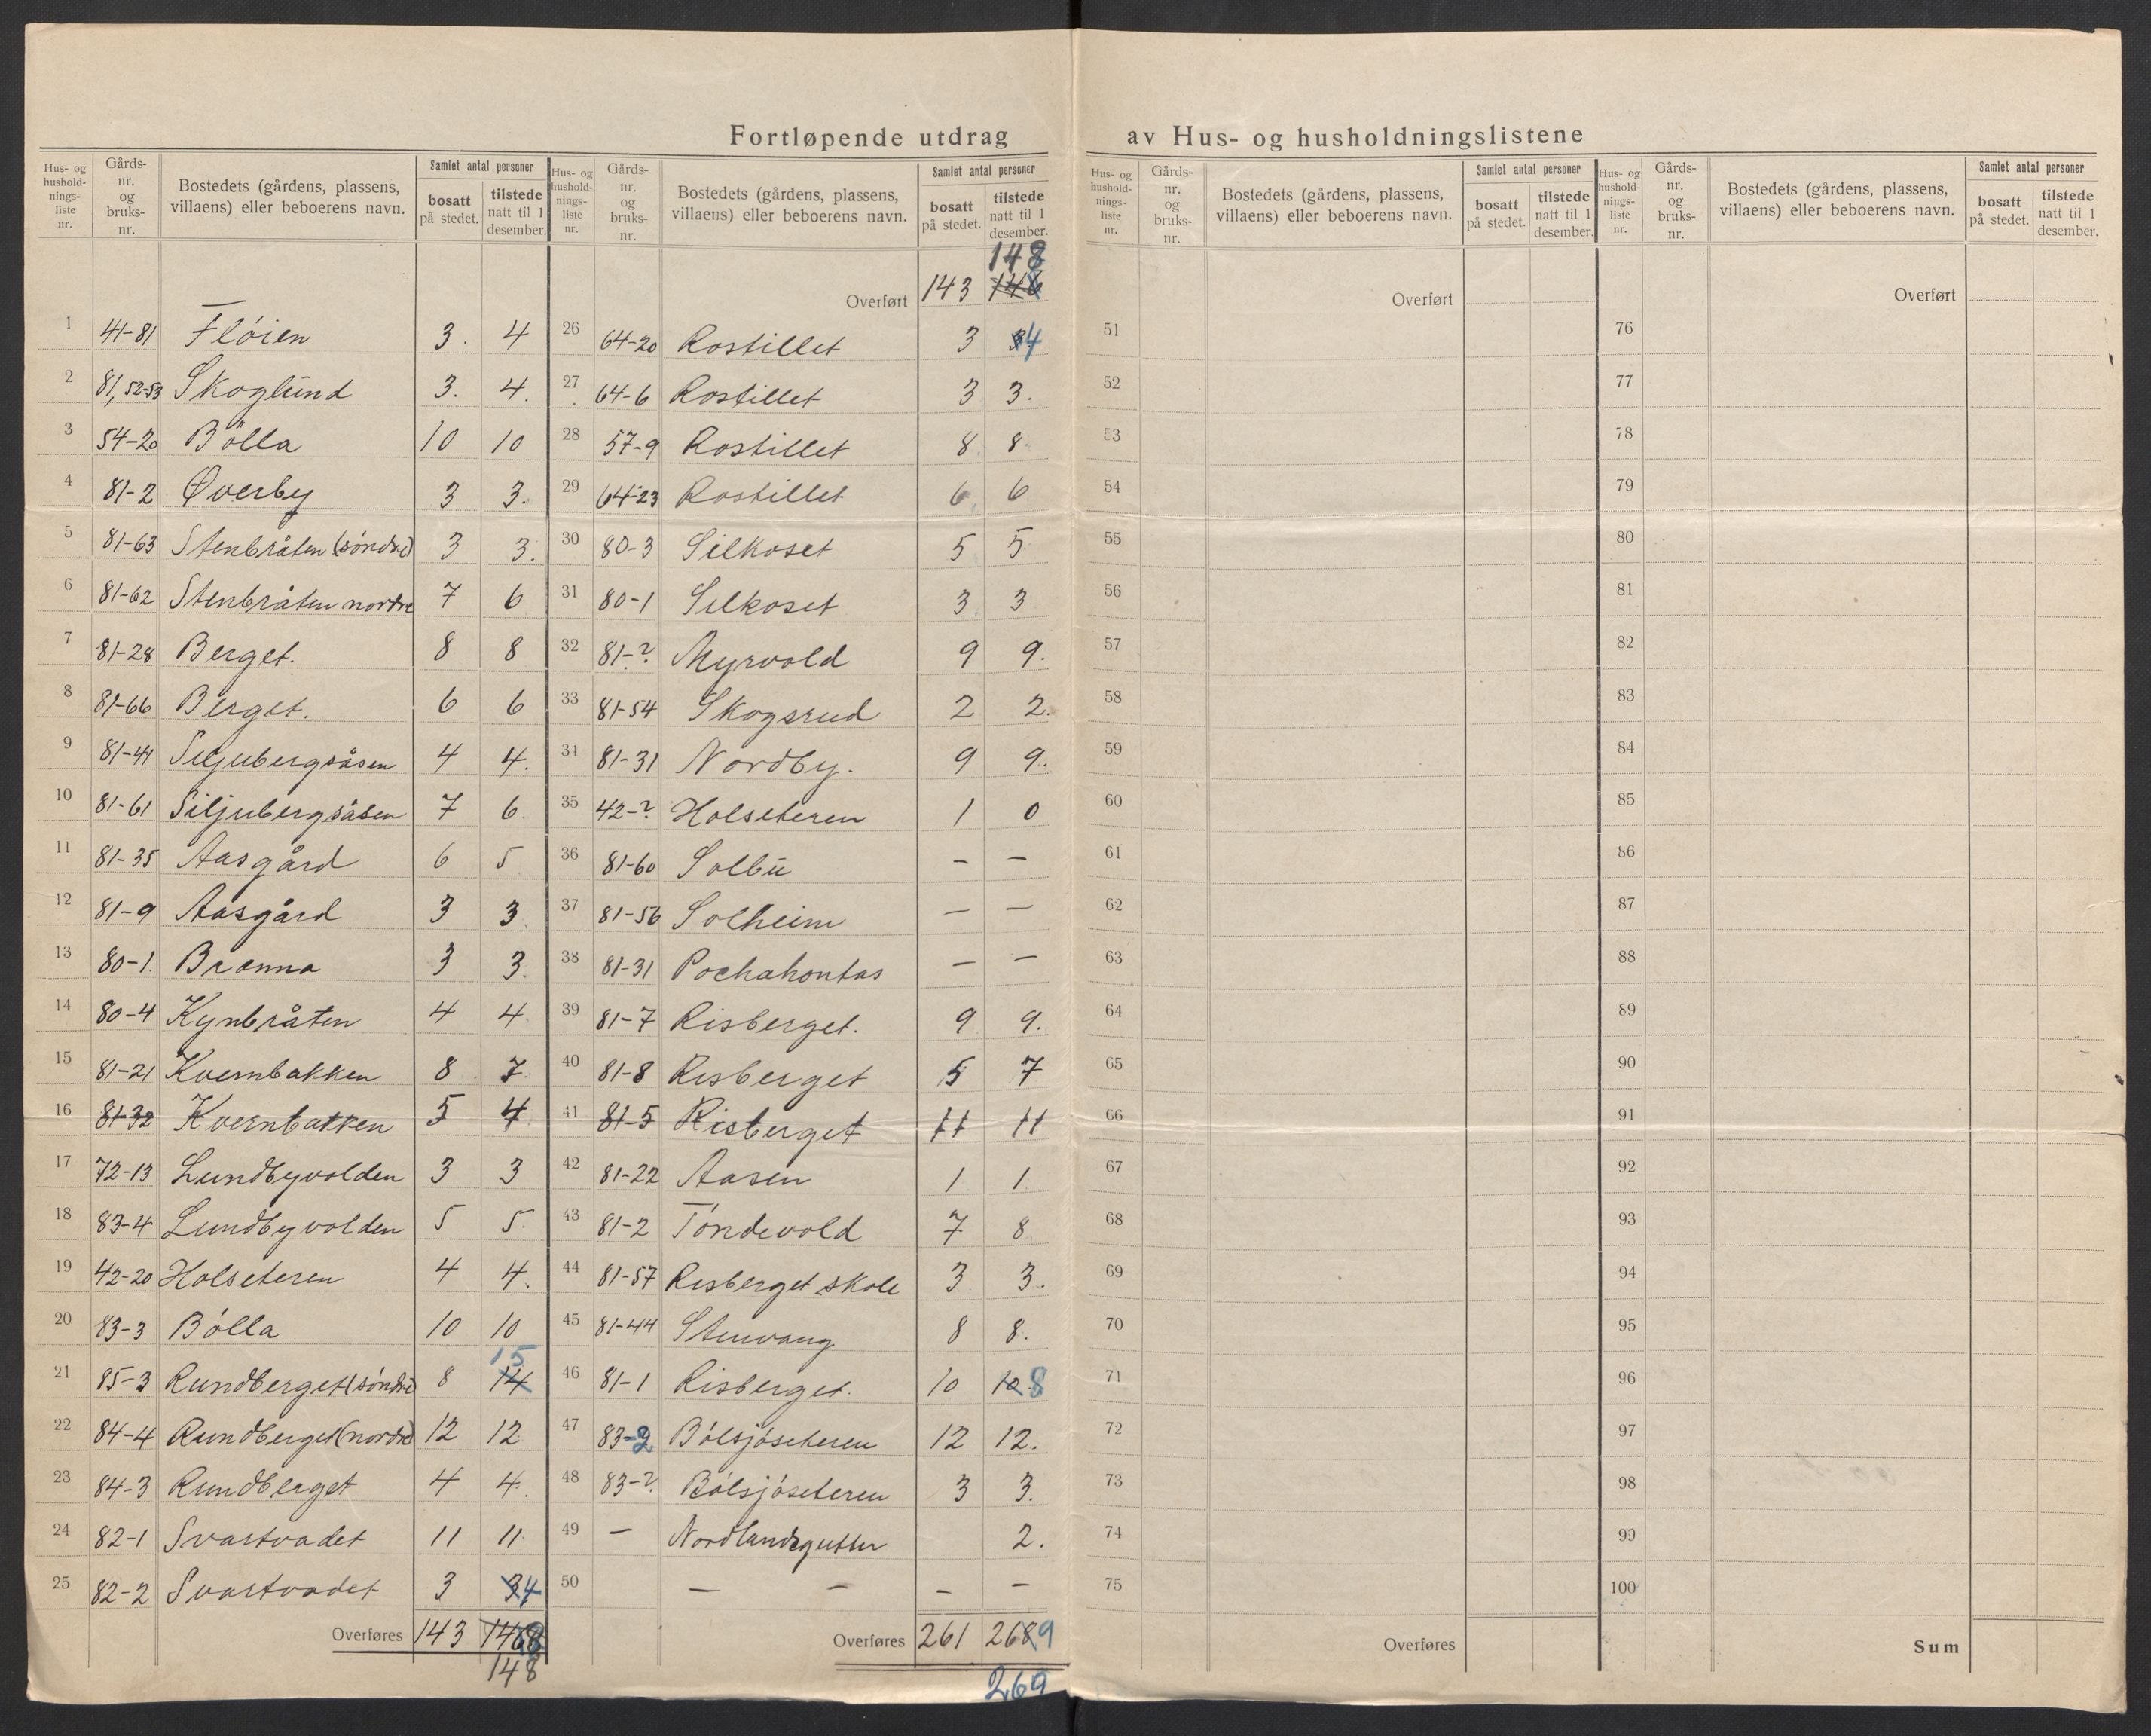 Fortløpende utdrag av Hus- og husholdningslistene
Hus- og hushold-nings-liste nr. | Gårds-nr. og bruks-nr. | Bostedets (gårdens, plassens, villaens) eller beboerens navn. | Samlet antal personer | bosatt på stedet. | tilstede natt til 1 desember.
1 41-81 Flöien 3. 4
2 81,52-53 Skoglund 3. 4.
3 54-20 Bölla 10 10
4 81-2 Øverby 3 3.
5 81-63 Stenbråten (söndre) 3 3.
6 81-62 Stenbråten nordre 7 6
7 81-28 Berget. 8 8
8 81-66 Berget. 6 6
9 81-41 Siljubergsåsen 4 4.
10 81-61 Siljubergsåsen 7 6
11 81-35 Aasgård 6 5
12 81-9 Aasgård 3 3
13 80-1. Brænna 3 3.
14 80-4 Kynbråten 4 4
15 81-21 Kvernbakken 8 7
16 81-32 Kvernbakken 5 4
17 72-13 Lundbyvolden 3 3
18 83-4 Lundbyvolden 5 5.
19 42-20 Holseteren 4 4.
20 83-3 Bölla 10 10
21 85-3 Rundberget (söndre) 8 14 15
22 84-4 Rundberget (nordre) 12 12
23 84-3 Rundberget 4 4.
24 82-1 Svartvadet 11 11
25 82-2 Svartvadet 3 3 4
Overføres 143 146 8
148
Hus- og hushold-nings-liste nr. | Gårds-nr. og bruks-nr. | Bostedets (gårdens, plassens, villaens) eller beboerens navn. | Samlet antal personer | bosatt på stedet. | tilstede natt til 1 desember.
148
Overført 143 146
26 64-20 Rostillet 3 3 4
27 64-6 Rostillet 3 3.
28 57-9 Rostillet 8 8
29 64-23 Rostillet 6 6
30 80-3 Silkoset 5 5
31 80-1 Silkoset 3 3
32 81-? Myrvold 9 9.
33 81-54 Skogsrud 2 2.
34 81-31 Nordby. 9 9.
35 42-? Holseteren 1 0
36 81-60 Solbu – –
37 81-56 Solheim – –
38 81-31 Pochahontas – –
39 81-7 Risberget. 9 9.
40 81-8 Risberget 5 7
41 81-5 Risberget 11 11
42 81-22 Aasen 1 1
43 81-2 Töndevold 7 8
44 81-57 Risberget skole 3 3.
45 81-44 Stenvang 8 8.
46 81-1 Risberget. 10 10 8
47 83-2 Bölsjöseteren 12 12.
48 83-? Bölsjöseteren 3 3.
49 – Nordlandsgutter 2.
50 – – – –
Overføres 261 268 9
269
Hus- og hushold-nings-liste nr. | Gårds-nr. og bruks-nr. | Bostedets (gårdens, plassens, villaens) eller beboerens navn. | Samlet antal personer | bosatt på stedet. | tilstede natt til 1 desember.
Overført
51
52
53
54
55
56
57
58
59
60
61
62
63
64
65
66
67
68
69
70
71
72
73
74
75
Overføres
Hus- og hushold-nings-liste nr. | Gårds-nr. og bruks-nr. | Bostedets (gårdens, plassens, villaens) eller beboerens navn. | Samlet antal personer | bosatt på stedet. | tilstede natt til 1 desember.
Overført
76
77
78
79
80
81
82
83
84
85
86
87
88
89
90
91
92
93
94
95
96
97
98
99
100
Sum